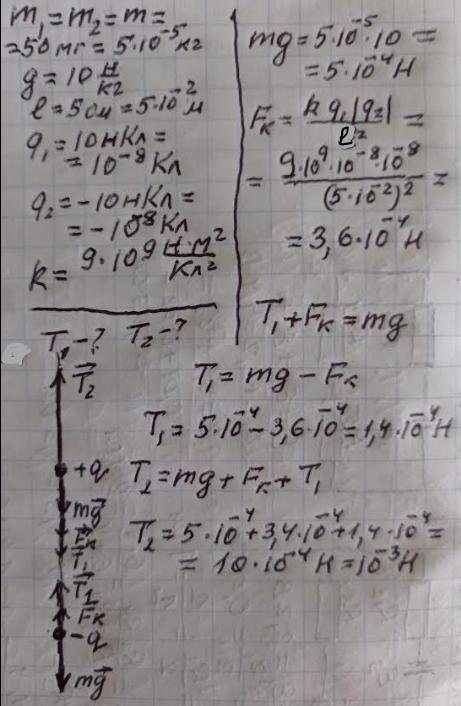 m₁ = m₂ = m =
= 50 мг = 5·10⁻⁵ кг
g = 10 Н/кг
ℓ = 5 см = 5·10⁻² м
q₁ = 10 нКл =
= 10⁻⁸ Кл
q₂ = -10 нКл =
= -10⁻⁸ Кл
k = 9·10⁹ Н·м²/Кл²
T₁ - ? T₂ - ?
mg = 5·10⁻⁵·10 =
= 5·10⁻⁴ Н
Fк = k q₁|q₂|/ℓ² =
= 9·10⁹·10⁻⁸·10⁻⁸/(5·10⁻²)² =
= 3,6·10⁻⁴ Н
T₁ + Fк = mg
T₁ = mg - Fк
T₁ = 5·10⁻⁴ - 3,6·10⁻⁴ = 1,4·10⁻⁴ Н
T₂ = mg + Fк + T₁
T₂ = 5·10⁻⁴ + 3,4·10⁻⁴ + 1,4·10⁻⁴ =
= 10·10⁻⁴ Н = 10⁻³ Н
T₂
+q
mg
Fк
T₁
T₁
Fк
-q
mg